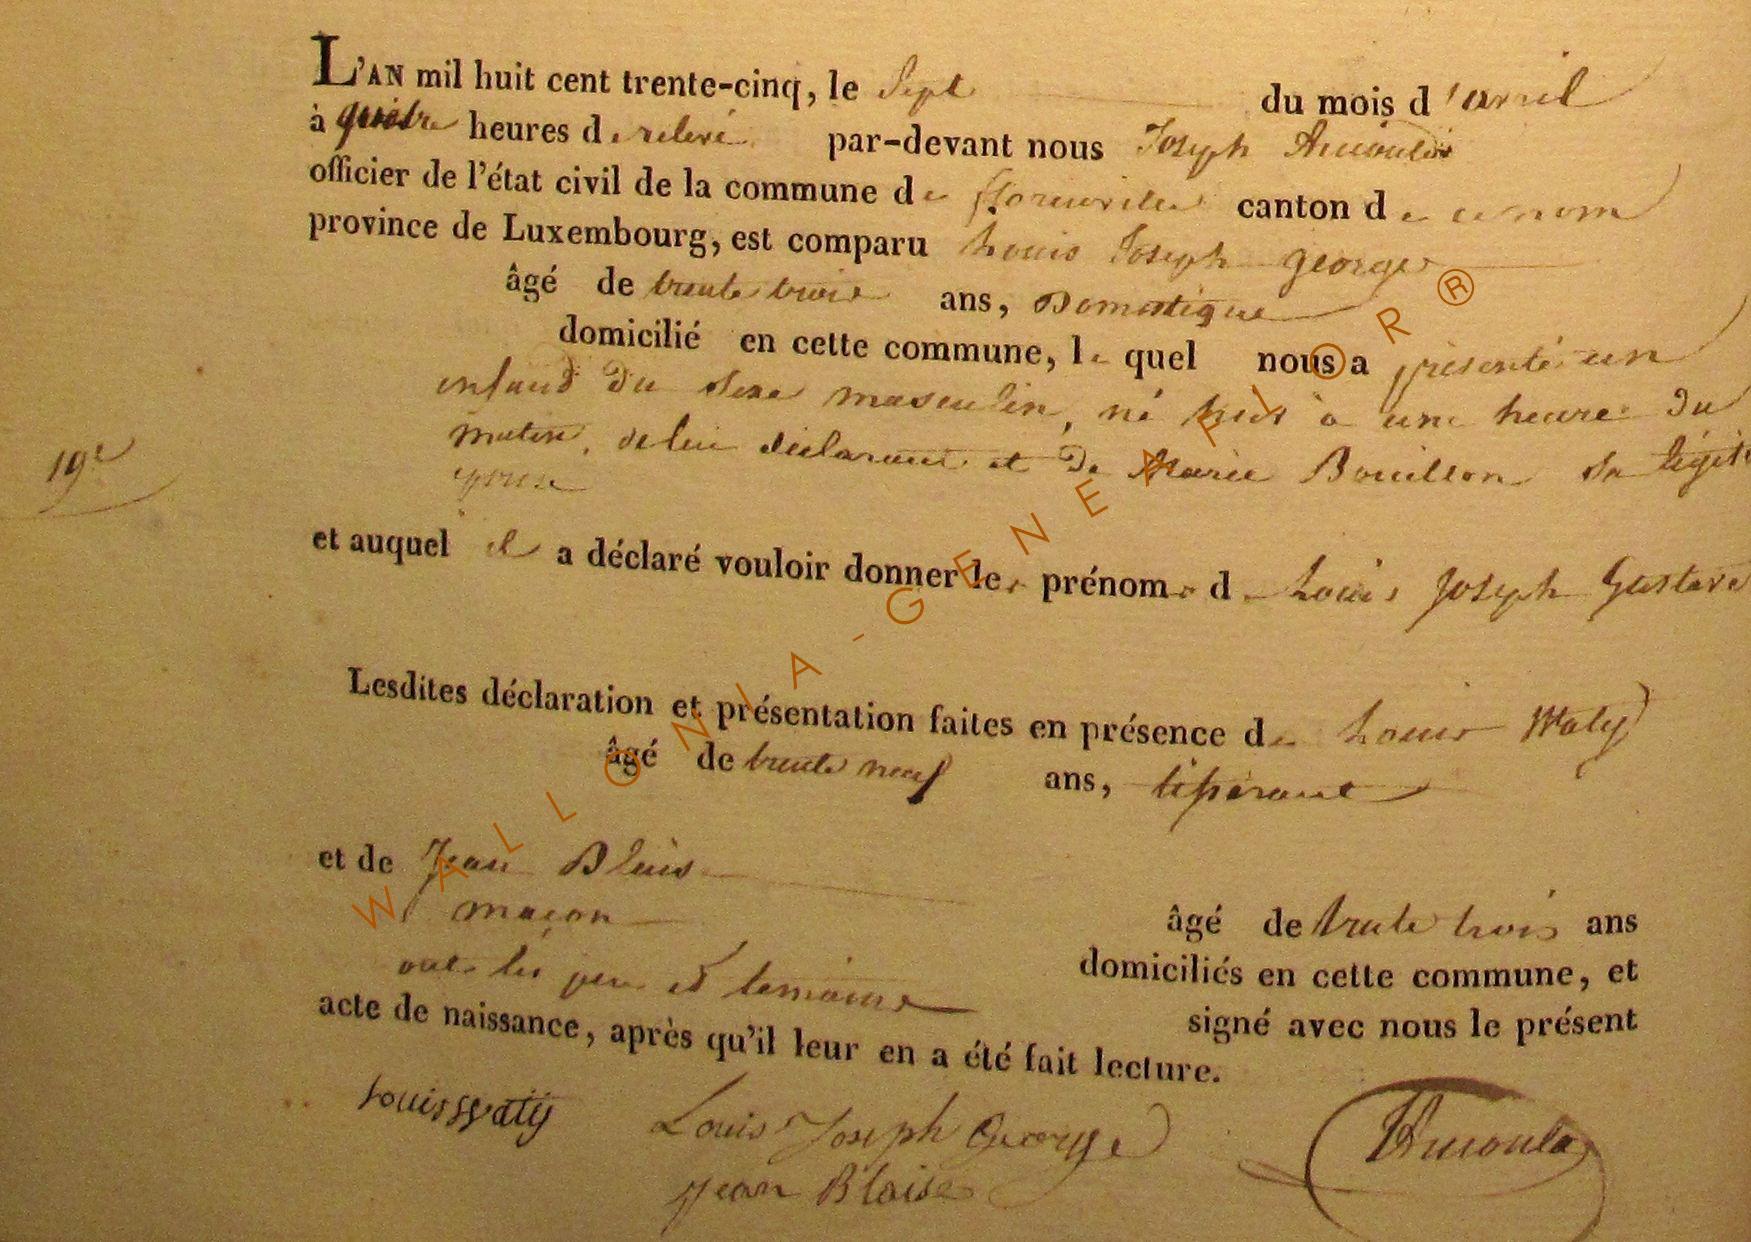 L'AN mil huit cent trente-cinq, le Sept du mois d'avril
à quatre heures de relevé par-devant nous Joseph
officier de l'état civil de la commune de florenville canton de ce nom
province de Luxembourg, est comparu Louis Joseph george
âgé de trente trois ans, Domestique
domicilié en cette commune, le quel nous a présenté un
enfand du sexe masculin, né hier à une heure du
matin, de lui déclarant et de Marie Bouillon sa légit
19e
épouse
et auquel il a déclaré vouloir donner les prénoms de Louis Joseph Gustave
Lesdites déclaration et présentation faites en présence de Louis Waty
âgé de trente neuf ans, tisserant
et de Jean Blais
maçon âgé de trente trois ans
domiciliés en cette commune, et
ont les pere et temoins signé avec nous le présent
acte de naissance, après qu'il leur en a été fait lecture.
Louis Waty Louis Joseph George
Jean Blaise
WALLONIA-GENEAFLOR®